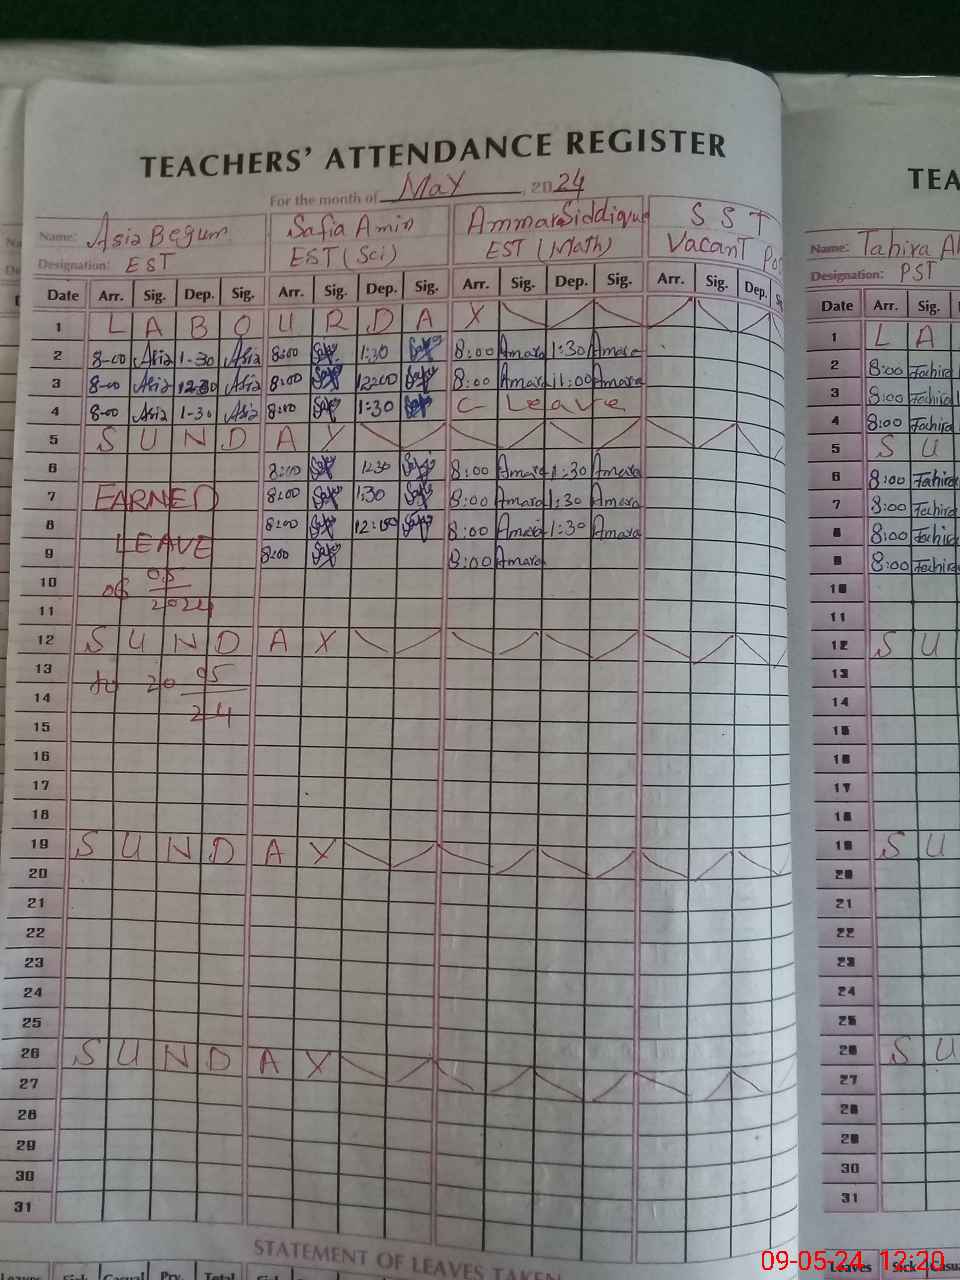 TEACHERS' ATTENDANCE REGISTER
For the month of May, 2024
Name: Asia Begum Safia Amin Ammara Siddiqui S S T
Designation: EST EST (Sci) EST (Math) Vacant
Date Arr. Sig. Dep. Sig. Arr. Sig. Dep. Sig. Arr. Sig. Dep. Sig. Arr. Sig. Dep.
1 L A B O U R D A Y
2 8-00 Asia 1-30 Asia 8:00 1:30 8:00 Amara 1:30 Amara
3 8-00 Asia 12-30 Asia 8:00 12:00 8:00 Amara 11:00 Amara
4 8-00 Asia 1-30 Asia 8:00 1:30 C Leave
5 S U N D A Y
6 8:00 1:30 8:00 Amara 1:30 Amara
7 EARNED 8:00 1:30 8:00 Amara 1:30 Amara
8 8:00 12:00 8:00 Amara 1:30 Amara
9 LEAVE 8:00 8:00 Amara
10 06 05
11 2024
12 S U N D A Y
13 to 20 05
14 24
15
16
17
18
19 S U N D A Y
20
21
22
23
24
25
26 S U N D A Y
27
28
29
30
31
STATEMENT OF LEAVES TAKEN
Leaves Sick Casual Prv. Total
TEA
Name: Tahira
Designation: PST
Date Arr. Sig.
1 L A
2 8:00 Tahira
3 8:00 Tahira
4 8:00 Tahira
5 S U
6 8:00 Tahira
7 8:00 Tahira
8 8:00 Tahira
9 8:00 Tahira
10
11
12 S U
13
14
15
16
17
18
19 S U
20
21
22
23
24
25
26 S U
27
28
29
30
31
Leaves Sick Casual
09-05-24 12:20